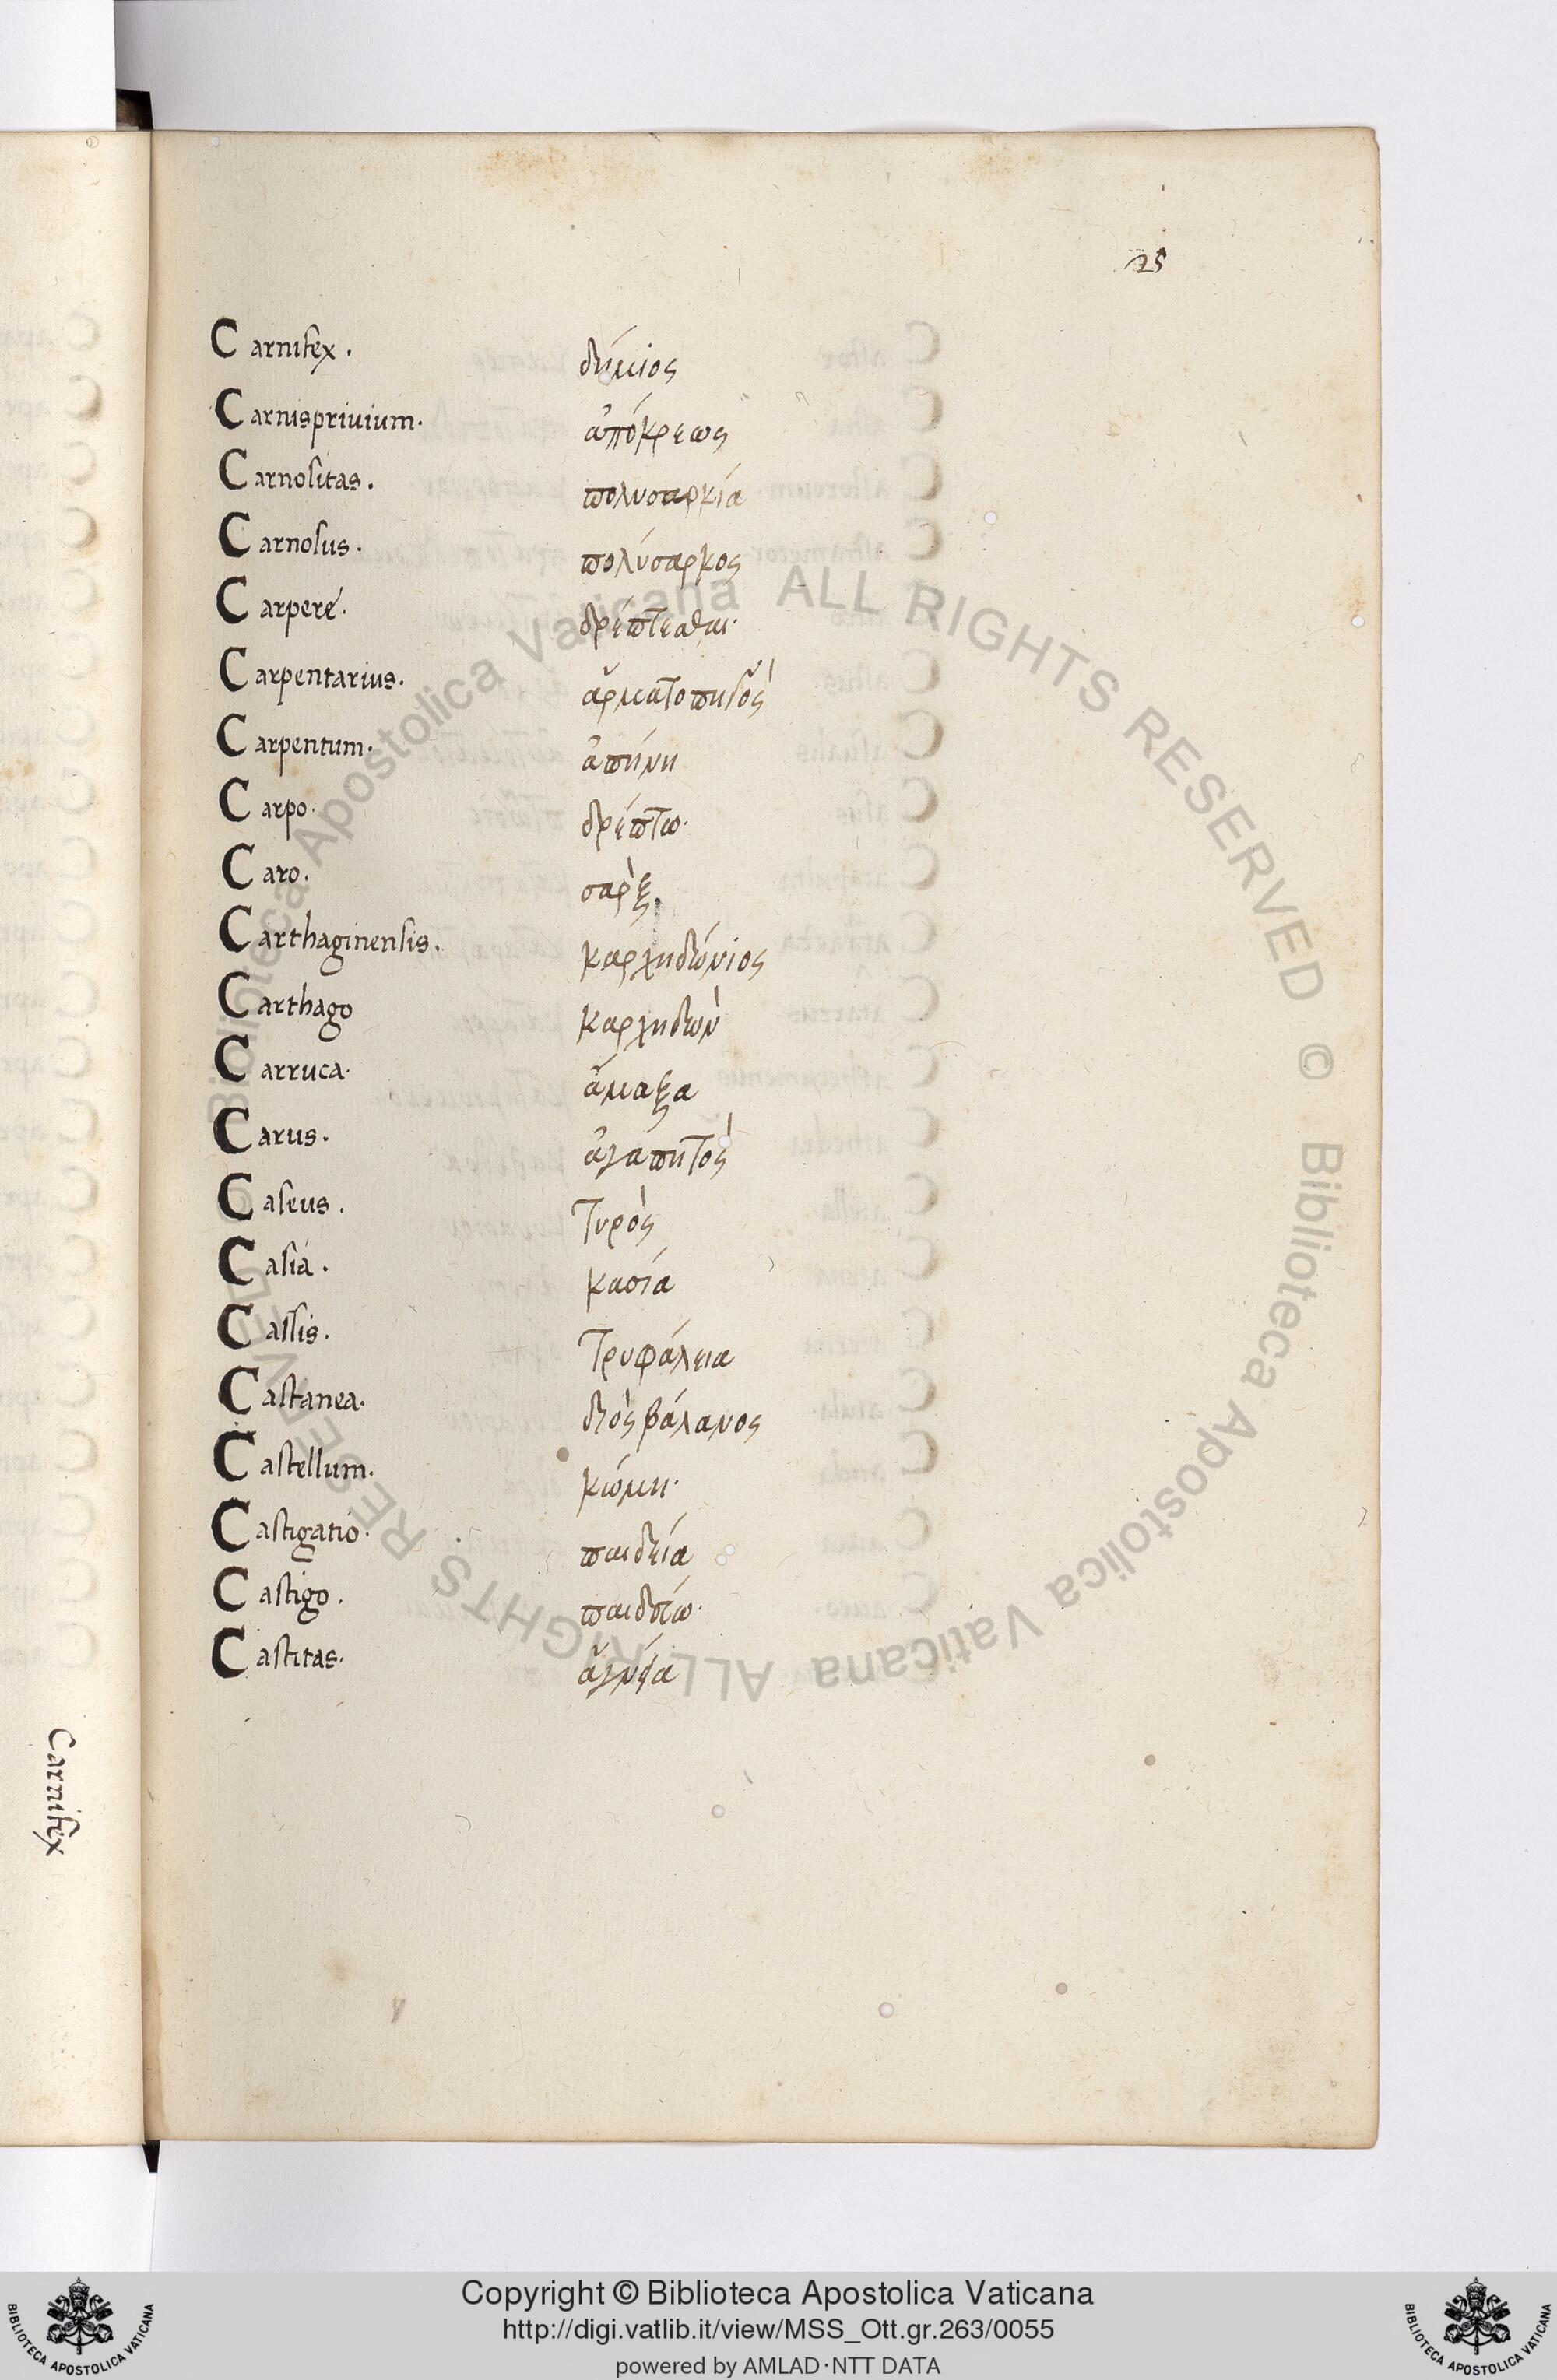 25
Carnifex. δήμιος
Carnisprivium. ἀπόκρεως
Carnositas. πολυσαρκία
Carnosus. πολύσαρκος
Carpere. δρέπτεσθαι·
Carpentarius. ἁρματοπηγὸς
Carpentum. ἀπήνη
Carpo. δρέπτω·
Caro. σὰρξ
Carthaginensis. καρχηδόνιος
Carthago καρχηδὼν
Carruca. ἅμαξα
Carus. ἀγαπητὸς
Caseus. τυρὸς
Casia. κασία
Cassis. τρυφάλεια
Castanea. διὸς βάλανος
Castellum. κώμη·
Castigatio. παιδεία
Castigo. παιδεύω·
Castitas. ἁγνεία
Carnifex
Biblioteca Apostolica Vaticana ALL RIGHTS RESERVED © Biblioteca Apostolica Vaticana ALL RIGHTS RESERVED ©
Copyright © Biblioteca Apostolica Vaticana
http://digi.vatlib.it/view/MSS_Ott.gr.263/0055
powered by AMLAD·NTT DATA
BIBLIOTECA APOSTOLICA VATICANA
BIBLIOTECA APOSTOLICA VATICANA